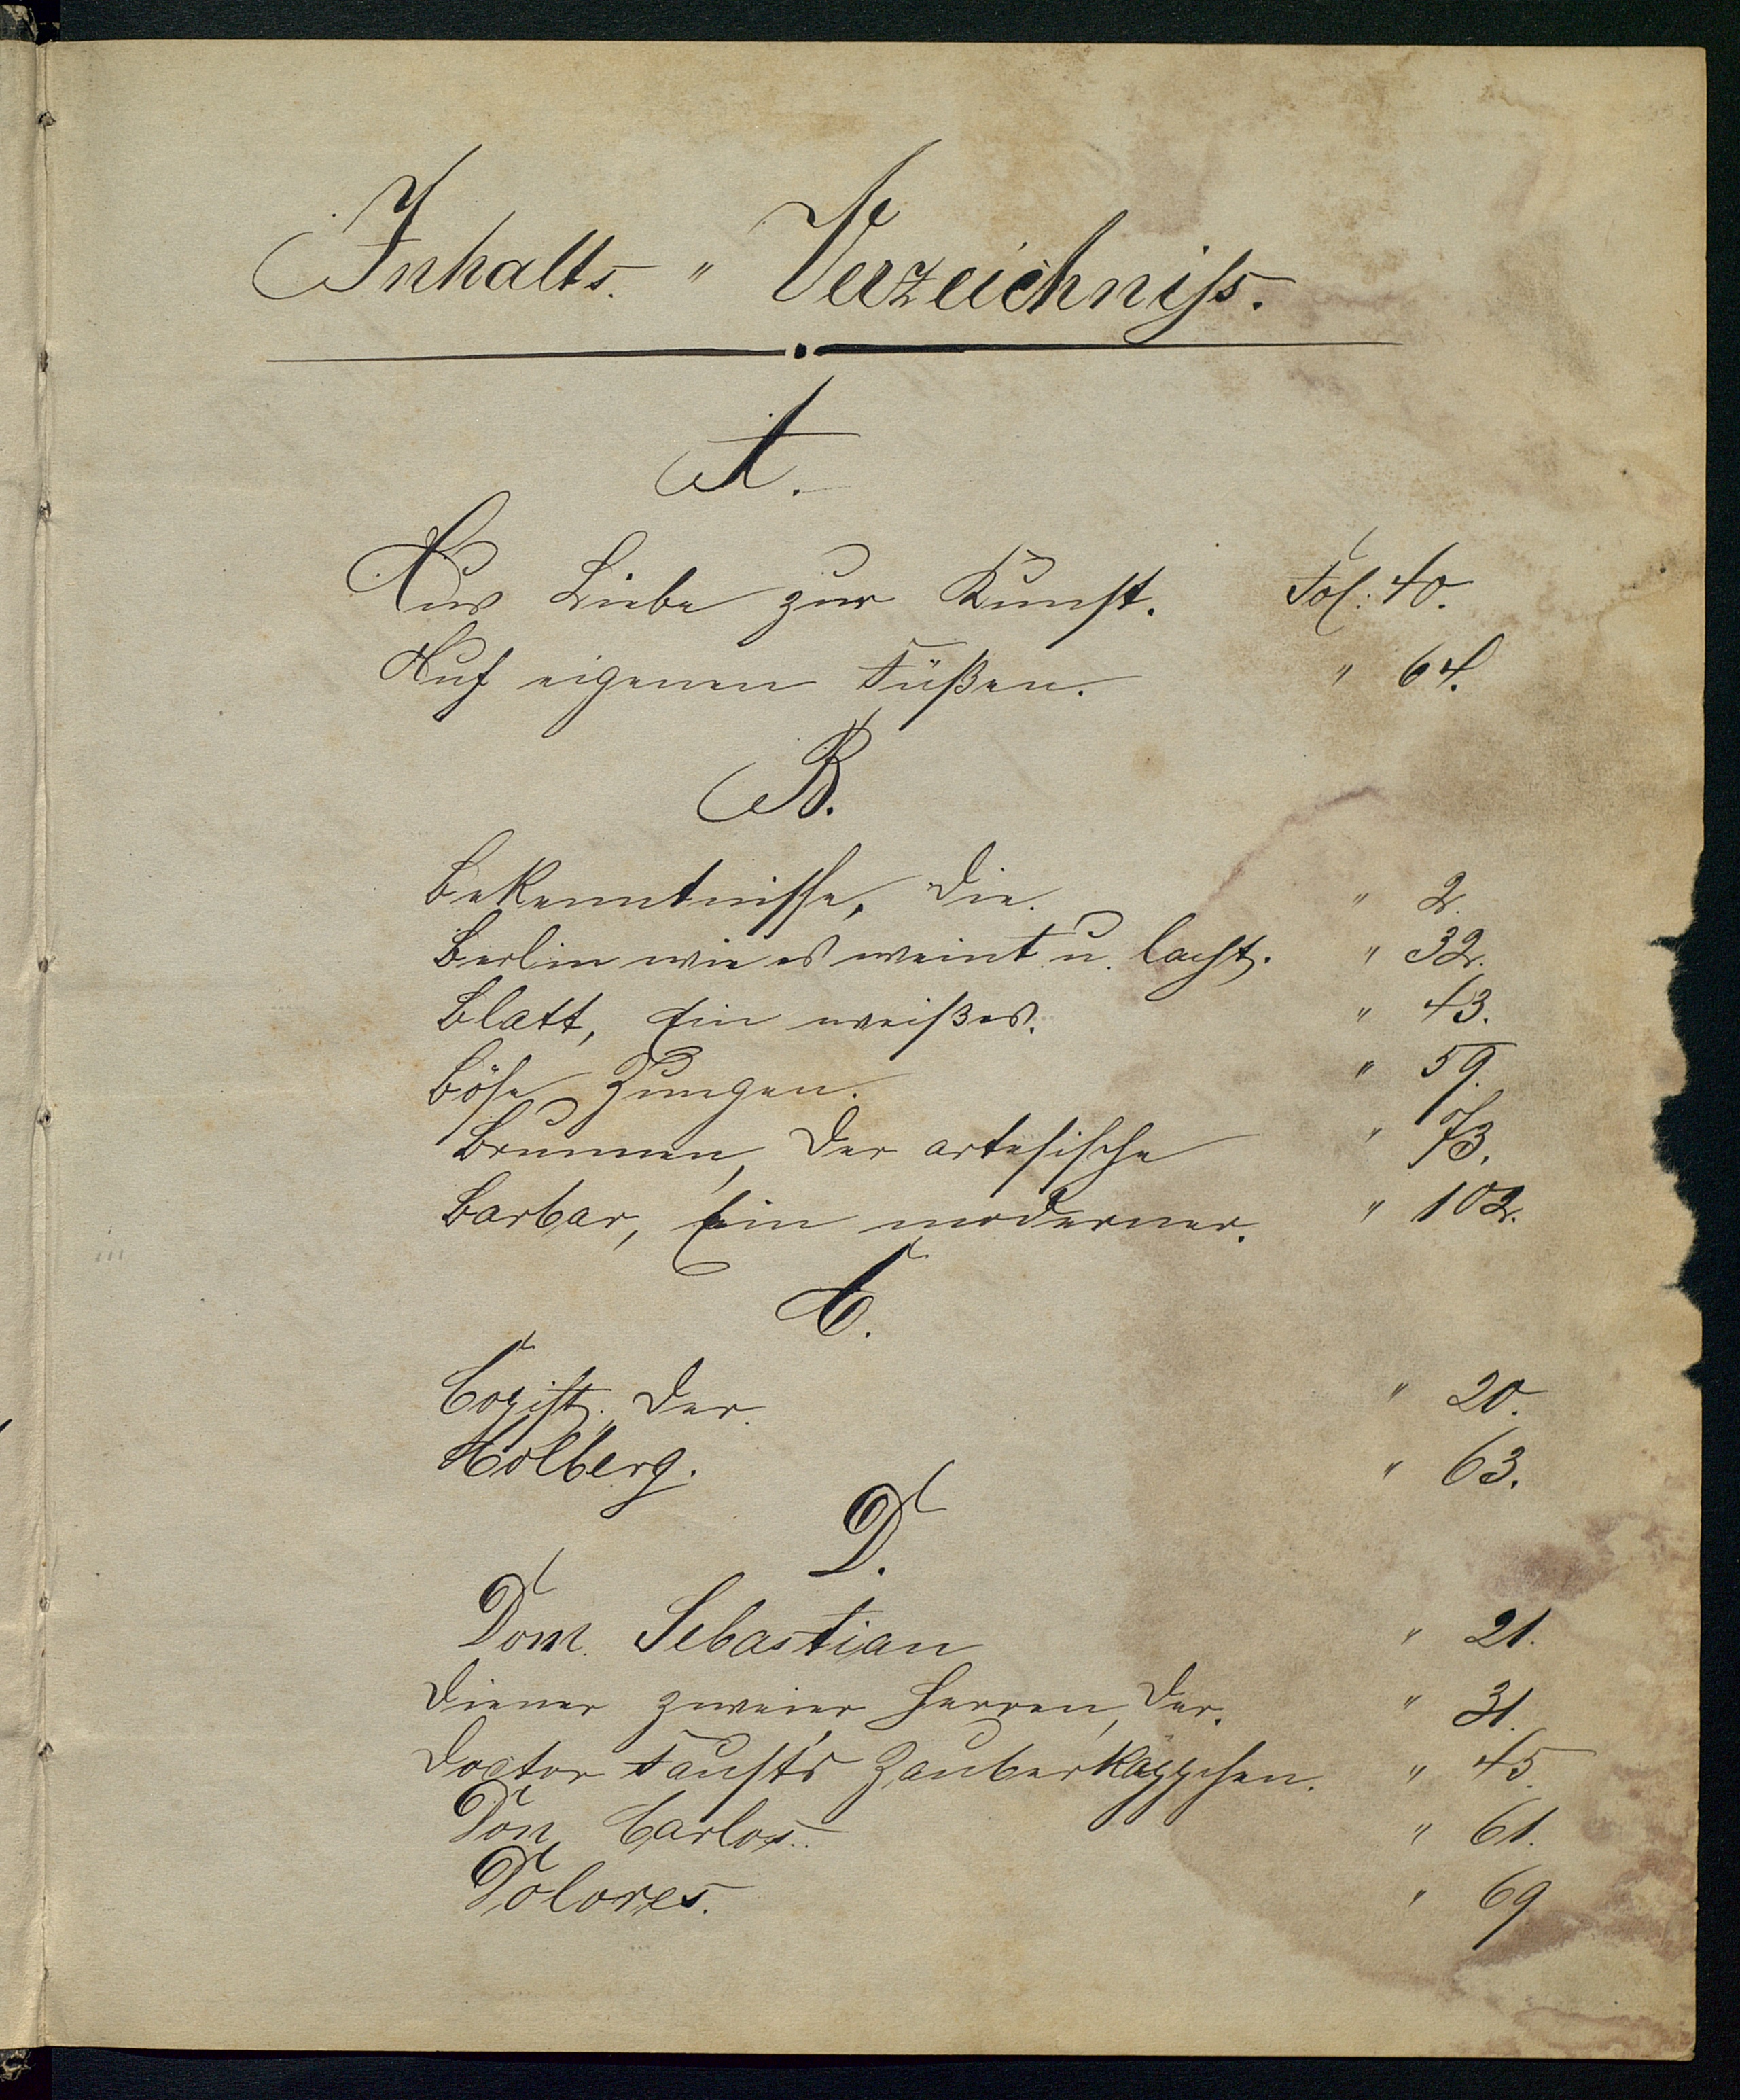 Inhalts. " Verzeichniss.
A.
Aus Liebe zur Kunst. Fol: 40.
Auf eigenen Füßen. " 64.
B.
Bekenntnisse, die. " 2.
Berlin wie es weint u. lacht. " 32.
Blatt, Ein weißes. " 43.
Böse Zungen. " 59.
Brunnen, der artesische " 73.
Barbar, Ein moderner. " 102.
C.
Copist, der. " 20.
Colberg. " 63.
D.
Dom. Sebastian " 21.
Diener zweier Herren, der. " 31.
Doctor Faust's Zauberkäppchen. " 45.
Don Carlos. " 61.
Dolores. " 69